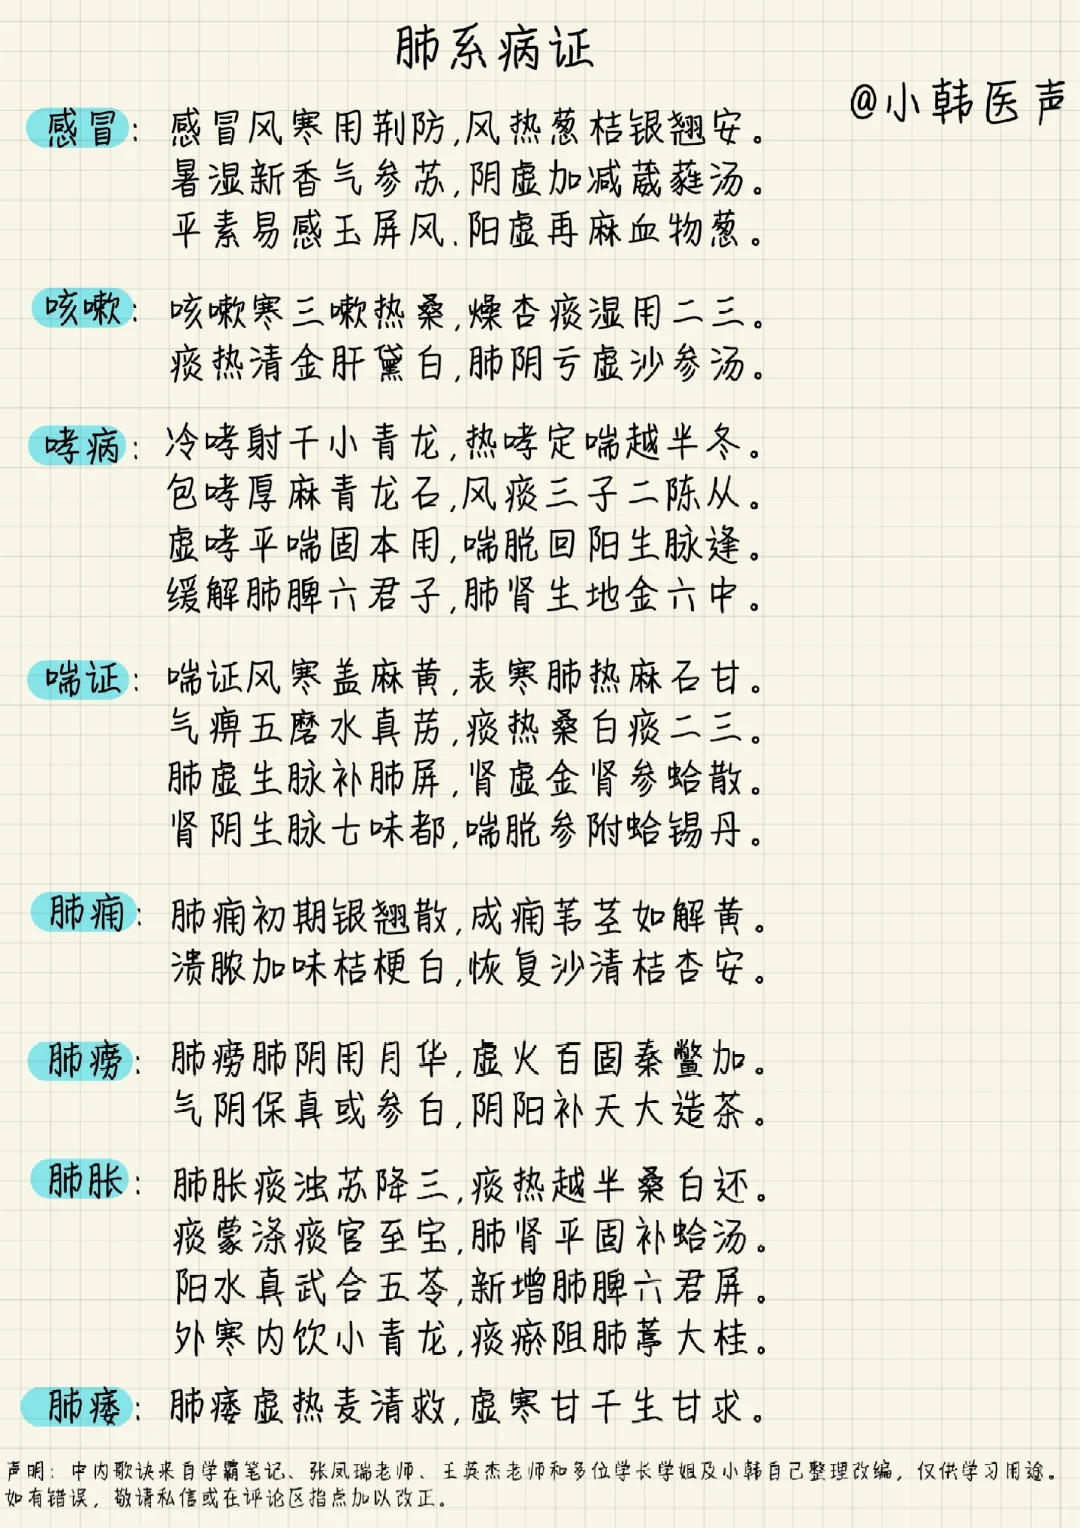 肺系病证
@小韩医声
感冒：感冒风寒用荆防,风热葱桔银翘安。
暑湿新香气参苏,阴虚加减葳蕤汤。
平素易感玉屏风.阳虚再麻血物葱。
咳嗽：咳嗽寒三嗽热桑,燥杏痰湿用二三。
痰热清金肝黛白,肺阴亏虚沙参汤。
哮病：冷哮射干小青龙,热哮定喘越半冬。
包哮厚麻青龙石,风痰三子二陈从。
虚哮平喘固本用,喘脱回阳生脉逢。
缓解肺脾六君子,肺肾生地金六中。
喘证：喘证风寒盖麻黄,表寒肺热麻石甘。
气痹五磨水真苈,痰热桑白痰二三。
肺虚生脉补肺屏,肾虚金肾参蛤散。
肾阴生脉七味都,喘脱参附蛤锡丹。
肺痈：肺痈初期银翘散,成痈苇茎如解黄。
溃脓加味桔梗白,恢复沙清桔杏安。
肺痨：肺痨肺阴用月华,虚火百固秦鳖加。
气阴保真或参白,阴阳补天大造茶。
肺胀：肺胀痰浊苏降三,痰热越半桑白还。
痰蒙涤痰官至宝,肺肾平固补蛤汤。
阳水真武合五苓,新增肺脾六君屏。
外寒内饮小青龙,痰瘀阻肺葶大桂。
肺痿：肺痿虚热麦清救,虚寒甘干生甘求。
声明：中内歌诀来自学霸笔记、张凤瑞老师、王英杰老师和多位学长学姐及小韩自己整理改编，仅供学习用途。
如有错误，敬请私信或在评论区指点加以改正。